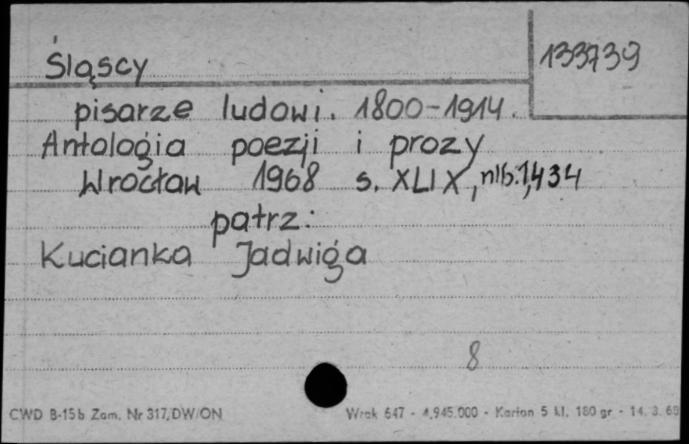 133739
Śląscy
pisarze ludowi. 1800-1914.
Antologia poezji i prozy
Wrocław 1968 s. XLIX, nlb.1,434
patrz:
Kucianka Jadwiga
8
CWD B-15b Zam. Nr 317,DW/ON Wrok 647 - 4,945.000 - Karton 5 kl. 180 gr - 14. 3. 65